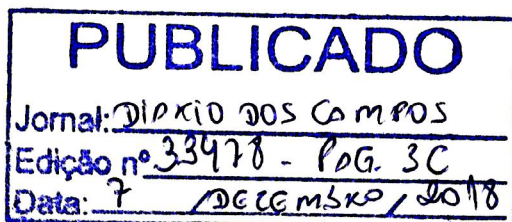 PUBLICADO
Jornal: DIARIO DOS CAMPOS
Edição nº 33478 - PAG. 3C
Data: 7 / DEZEMBRO / 2018